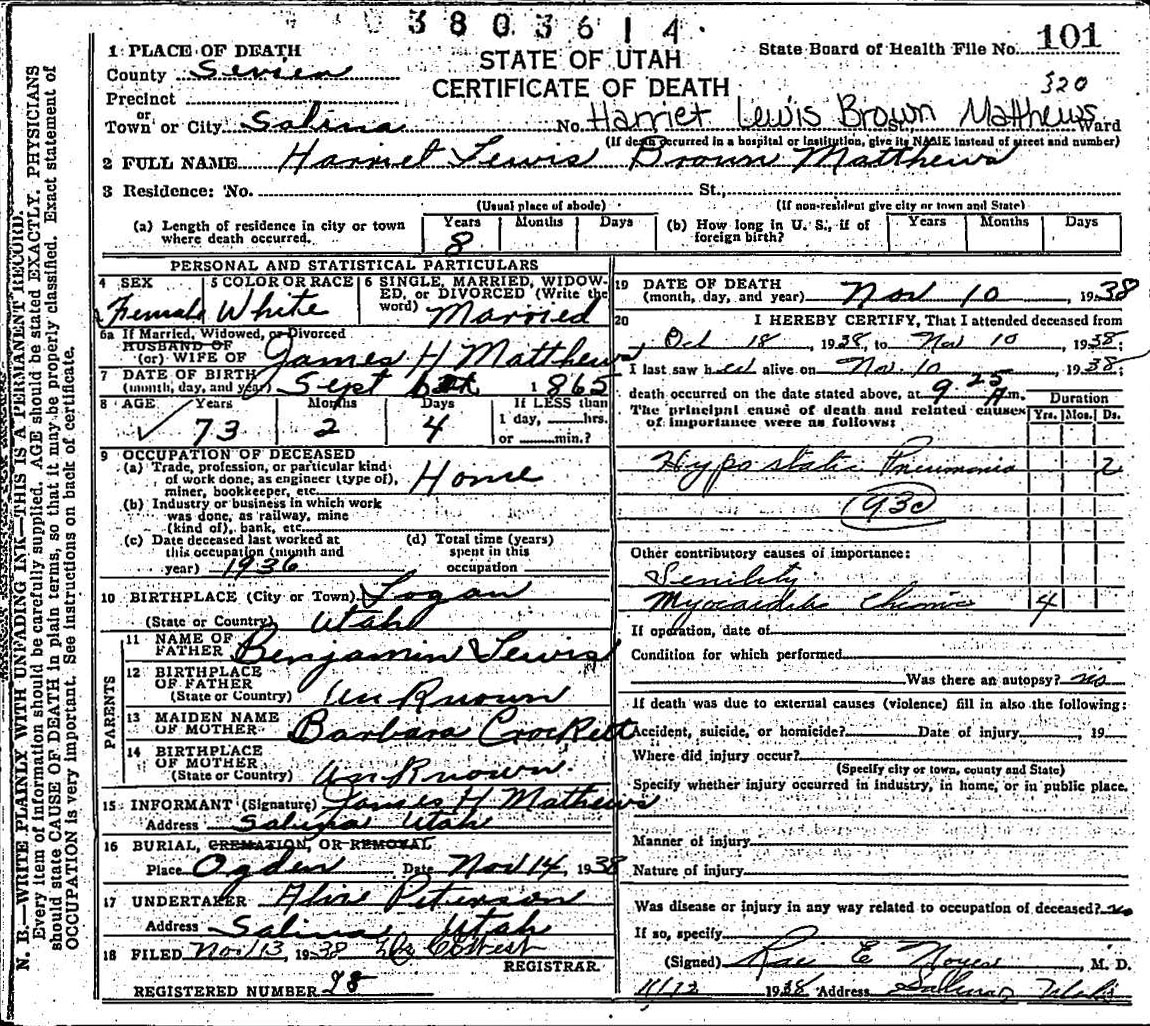 3803614.
1 PLACE OF DEATH
County Sevier
Precinct
or
Town or City Salina
STATE OF UTAH
CERTIFICATE OF DEATH
State Board of Health File No. 101
320
No. Harriet Lewis Brown Matthews St., Ward
(If death occurred in a hospital or institution, give its NAME instead of street and number)
2 FULL NAME Harriet Lewis Brown Matthews
3 Residence: No. St.,
(Usual place of abode) (If non-resident give city or town and State)
(a) Length of residence in city or town where death occurred. Years 8 Months Days
(b) How long in U. S., if of foreign birth? Years Months Days
PERSONAL AND STATISTICAL PARTICULARS
4 SEX Female
5 COLOR OR RACE White
6 SINGLE, MARRIED, WIDOWED, or DIVORCED (Write the word) Married
6a If Married, Widowed, or Divorced
HUSBAND OF
(or) WIFE OF James H Matthews
7 DATE OF BIRTH
(month, day, and year) Sept 6th 1865
8 AGE Years 73 Months 2 Days 4
If LESS than
1 day, hrs.
or min.?
9 OCCUPATION OF DECEASED
(a) Trade, profession, or particular kind
of work done, as engineer (type of),
miner, bookkeeper, etc. Home
(b) Industry or business in which work
was done, as railway, mine
(kind of), bank, etc.
(c) Date deceased last worked at
this occupation (month and
year) 1936
(d) Total time (years)
spent in this
occupation
10 BIRTHPLACE (City or Town) Logan
(State or Country) Utah
PARENTS
11 NAME OF
FATHER Benjamin Lewis
12 BIRTHPLACE
OF FATHER
(State or Country) Unknown
13 MAIDEN NAME
OF MOTHER Barbara Crockett
14 BIRTHPLACE
OF MOTHER
(State or Country) Unknown
15 INFORMANT (Signature) James H Mathews
Address Salina Utah
16 BURIAL, CREMATION, OR REMOVAL
Place Ogden Date Nov 14, 1938
17 UNDERTAKER Peterson
Address Salina Utah
18 FILED Nov 13, 1938 West
REGISTRAR.
REGISTERED NUMBER 28
19 DATE OF DEATH
(month, day, and year) Nov 10, 1938
20 I HEREBY CERTIFY, That I attended deceased from
Oct 18, 1938, to Nov 10, 1938;
I last saw her alive on Nov. 10, 1938;
death occurred on the date stated above, at 9.25 A.m.
The principal cause of death and related causes
of importance were as follows:
Duration
Yrs. Mos. Ds.
Hypostatic Pneumonia 2
93c
Other contributory causes of importance:
Senility
Myocarditis Chronic 4
If operation, date of
Condition for which performed
Was there an autopsy? no
If death was due to external causes (violence) fill in also the following:
Accident, suicide, or homicide? Date of injury, 19
Where did injury occur?
(Specify city or town, county and State)
Specify whether injury occurred in industry, in home, or in public place.
Manner of injury
Nature of injury
Was disease or injury in any way related to occupation of deceased? no
If so, specify
(Signed) Rae E Noyes, M. D.
11/12 1938 Address Salina, Utah
N. B.—WRITE PLAINLY WITH UNFADING INK—THIS IS A PERMANENT RECORD.
Every item of information should be carefully supplied. AGE should be stated EXACTLY. PHYSICIANS
should state CAUSE OF DEATH in plain terms, so that it may be properly classified. Exact statement of
OCCUPATION is very important. See instructions on back of certificate.